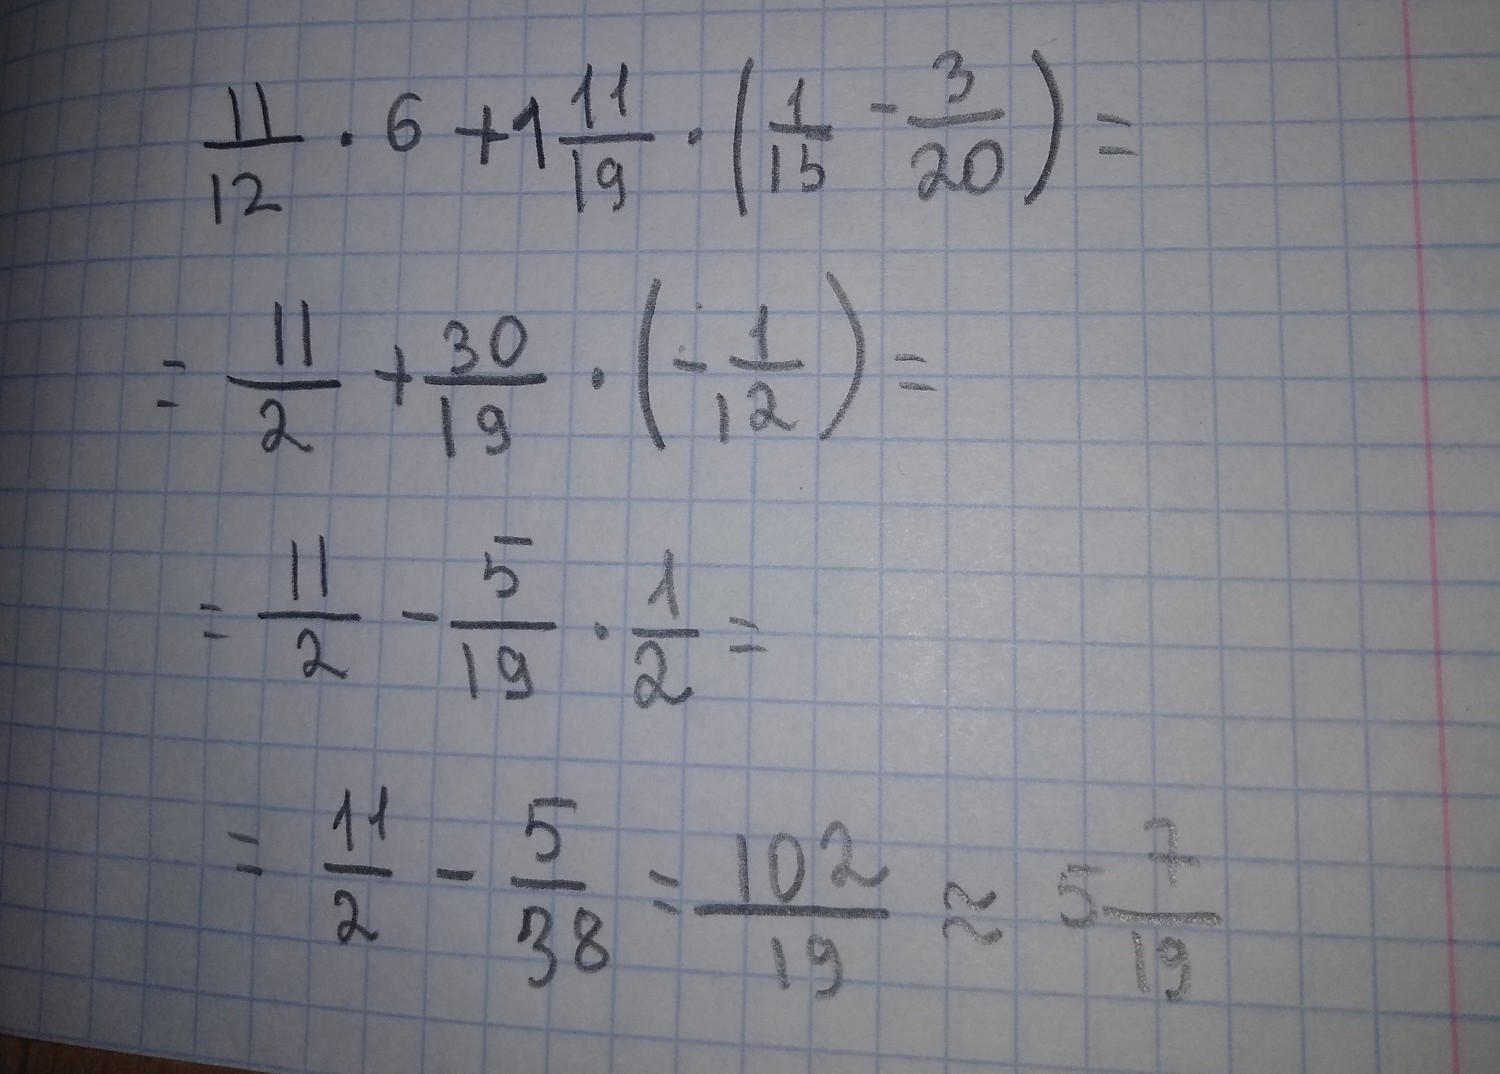 11/12 · 6 + 1 11/19 · (1/15 - 3/20) =
= 11/2 + 30/19 · (- 1/12) =
= 11/2 - 5/19 · 1/2 =
= 11/2 - 5/38 = 102/19 ≈ 5 7/19